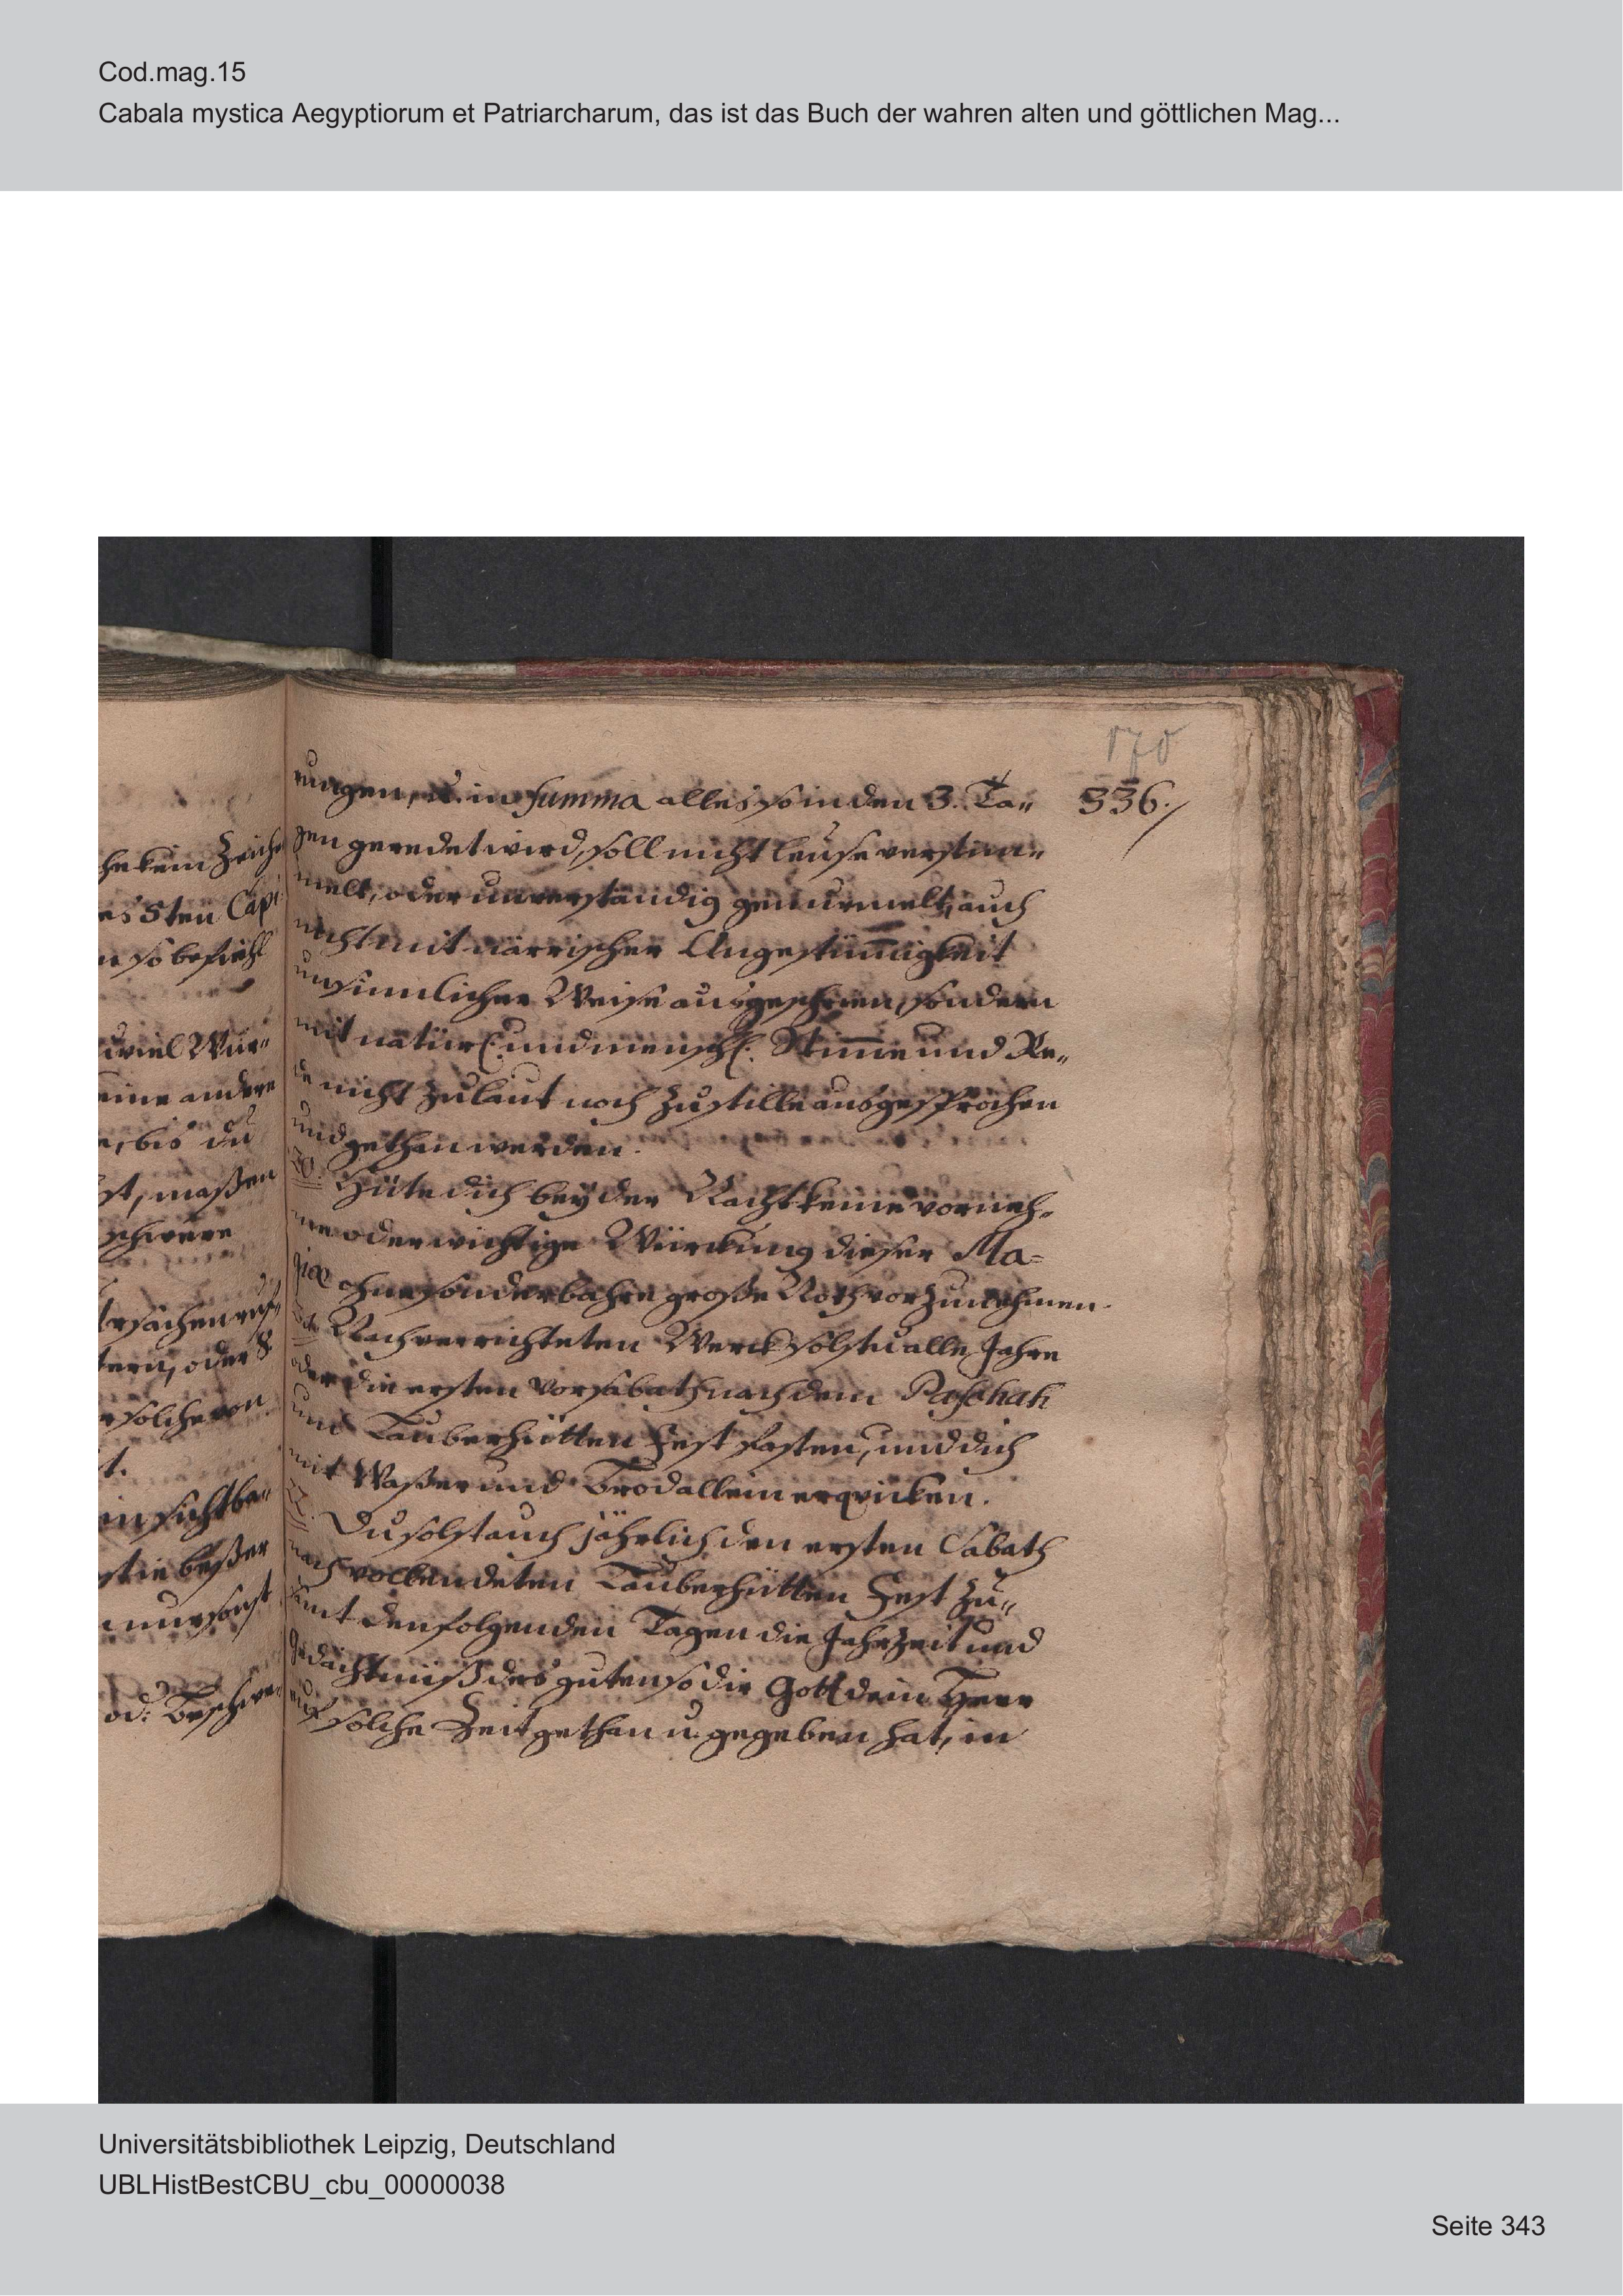 Cod.mag.15
Cabala mystica Aegyptiorum et Patriarcharum, das ist das Buch der wahren alten und göttlichen Mag...
170
336./
he kein Zeiche
es 5ten Capi
n so befiehl
uviel Wür„
eine andere
e, bis du
st, maßen
schwere
tern, oder
solche von
t.
insichtba„
sie beßer
nur sonst
od: Beschwe„
rungen, u. in Summa alles so in den 3. Ta„
gen geredet wird, soll nicht leuse verstüm„
melt, oder unverständig gemurmelt, auch
nicht mit närrischer Ungestümigkeit
unsinnlicher Weise ausgeschrien, sondern
mit natürl. und menschl. Stimme und Re„
de nicht zu laut noch zu stille ausgesprochen
und gethan werden.
20. Hüte dich bey der Nacht keine vorneh„
me oder wichtige Würckung dieser Ma=
giæ ohne sonderbahre große Noth vorzunehmen.
21. Nach verrichteten Werck solstu alle Jahre
oder die ersten Vorsabath nach dem Paschah
und Lauberhütten Fest fasten, und dich
mit Waßer und Brod allein erqvicken.
22. Du solst auch jährlich den ersten Sabath
nach vollendeten Lauberhütten Fest zu„
samt den folgenden Tagen die Jahrzeit und
Gedächtniß des guten so dir Gott dein Herr
auf solche Zeit gethan u. gegeben hat, in
Universitätsbibliothek Leipzig, Deutschland
UBLHistBestCBU_cbu_00000038
Seite 343